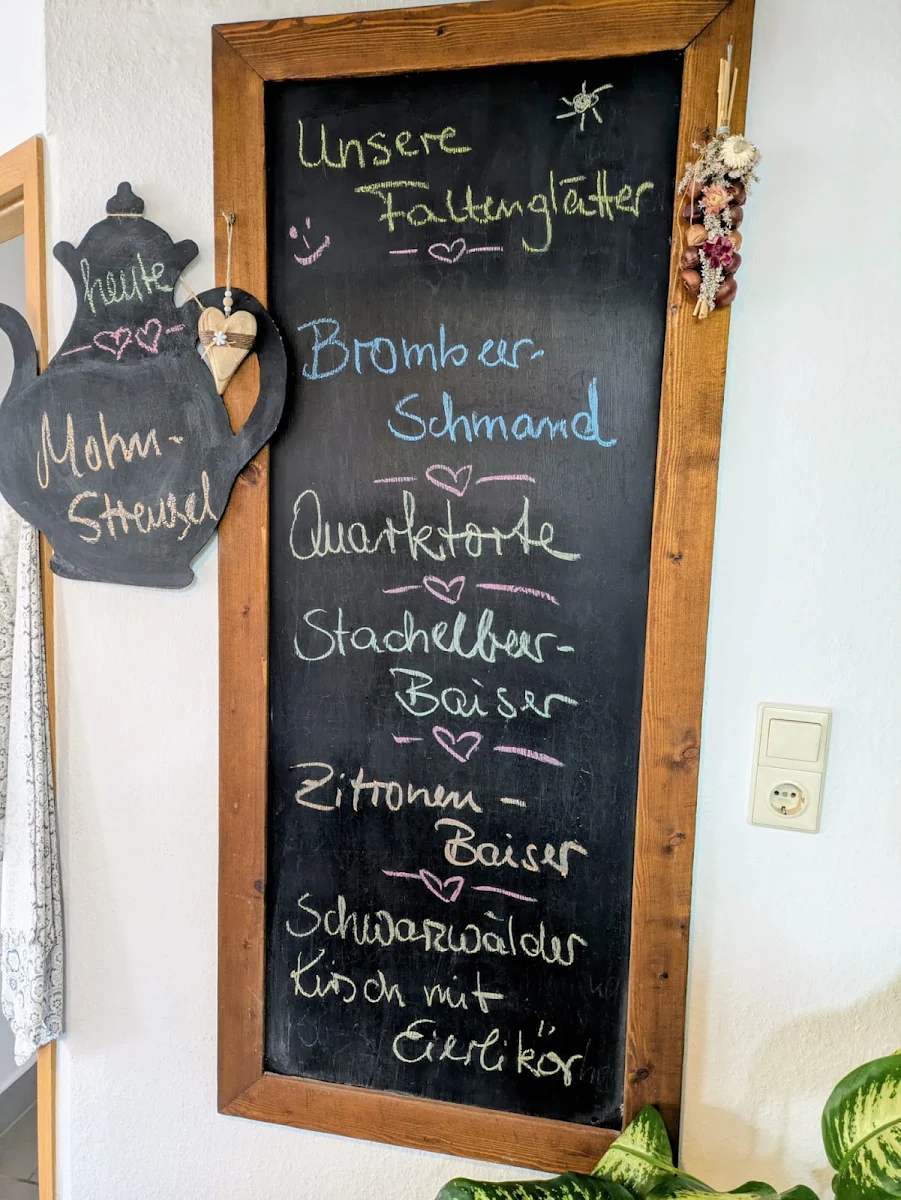 heute
Mohn-
Streusel
Unsere
Faltenglätter
Brombeer-
Schmand
Quarktorte
Stachelbeer-
Baiser
Zitronen-
Baiser
Schwarzwälder
Kirsch mit
Eierlikör